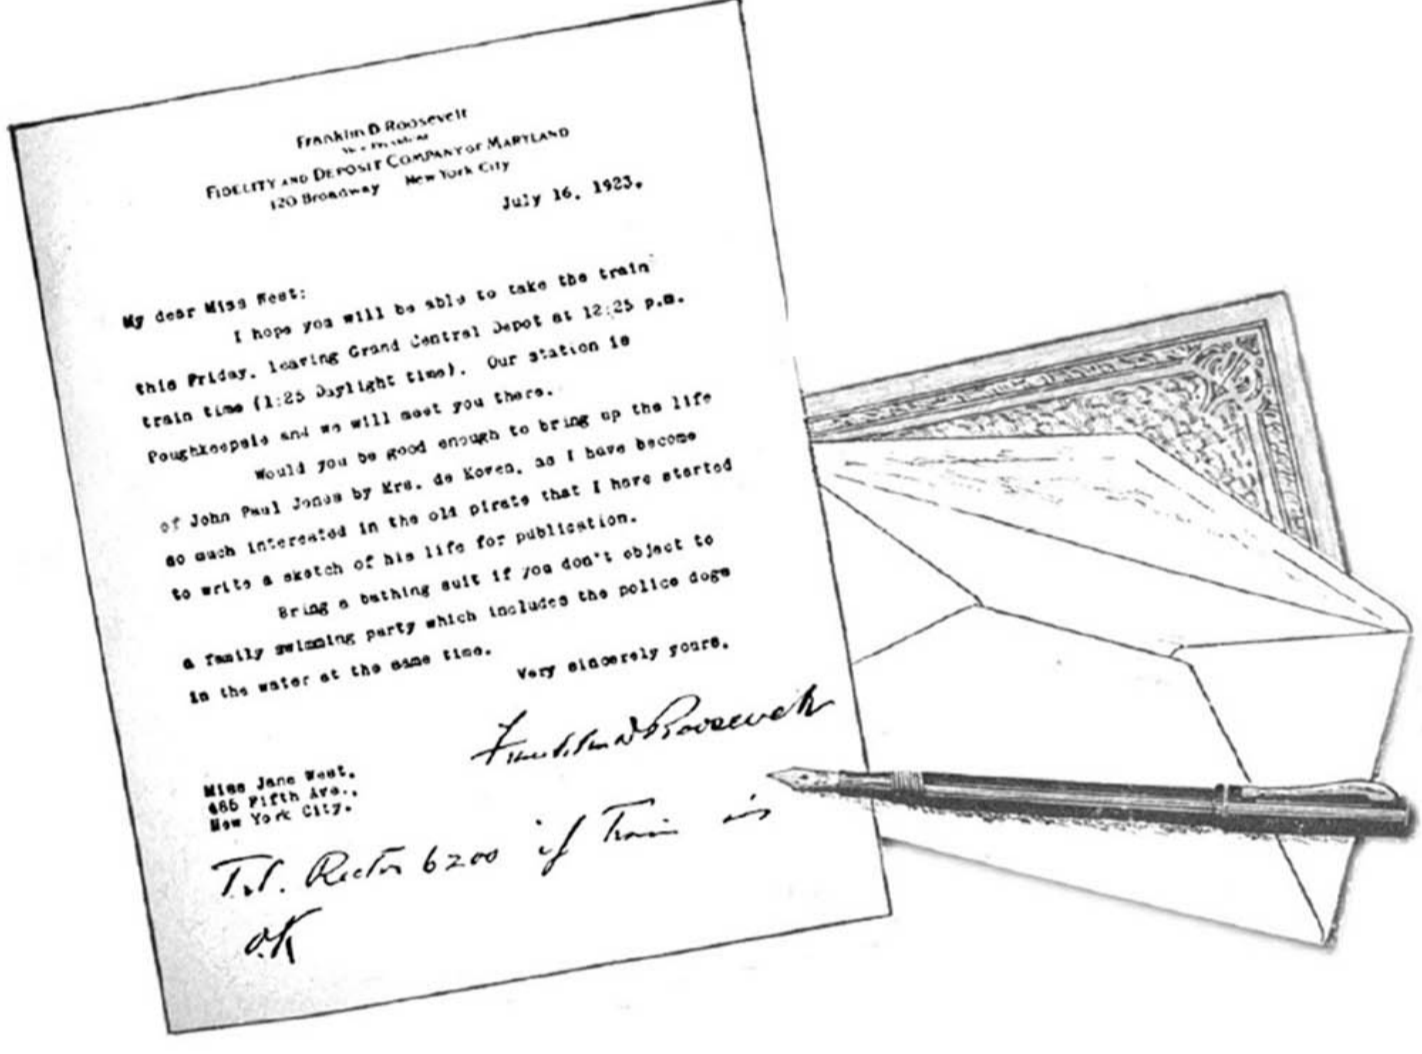 Franklin D Roosevelt
Vice President
FIDELITY AND DEPOSIT COMPANY OF MARYLAND
120 Broadway New York City
July 16, 1923.
My dear Miss West:
I hope you will be able to take the train
this Friday, leaving Grand Central Depot at 12:25 p.m.
train time (1:25 Daylight time). Our station is
Poughkeepsie and we will meet you there.
Would you be good enough to bring up the life
of John Paul Jones by Mrs. de Koven, as I have become
so much interested in the old pirate that I have started
to write a sketch of his life for publication.
Bring a bathing suit if you don't object to
a family swimming party which includes the police dogs
in the water at the same time.
Very sincerely yours,
Franklin D Roosevelt
Miss Jane West,
485 Fifth Ave.,
New York City.
Tel. Rector 6200 if Train is
O.K